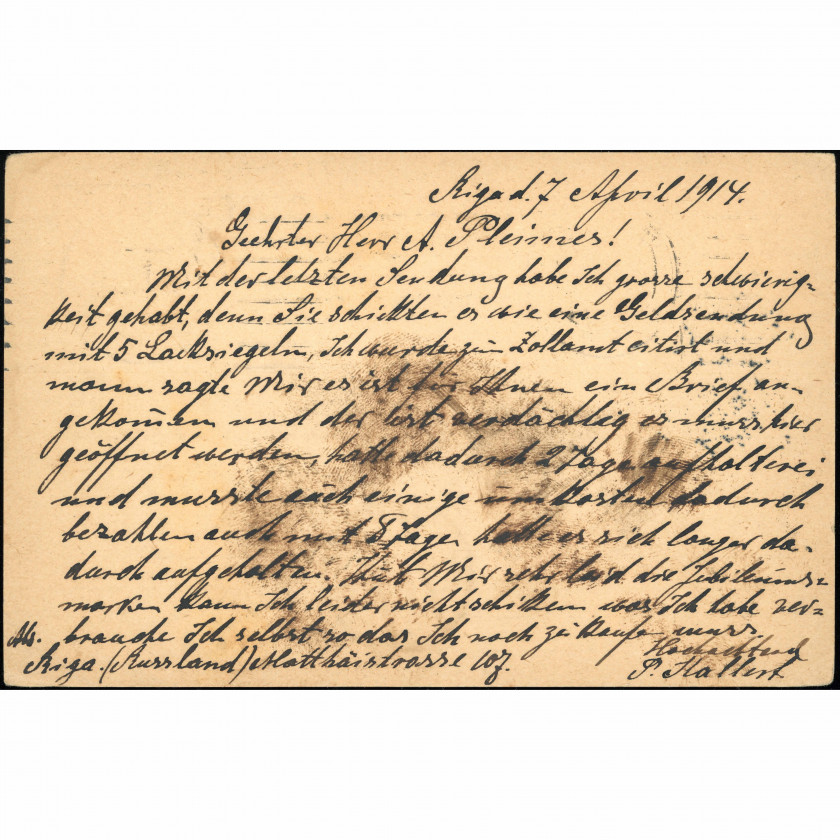 Riga d. 7 April 1914.
Geehrter Herr A. Pleines!
Mit der letzten Sendung habe Ich grosse schwierig=
keit gehabt, denn Sie schickten es wie eine Geldsendung
mit 5 Lacksiegeln, Ich wurde zum Zollamt citirt und
mann sagte Mir es ist für Ihnen ein Brief an-
gekom̅en und der ist verdächtig es muss hier
geöffnet werden, hatte dadurch 2 Tage aufhalterei
und musste auch einige umkosten dadurch
bezahlen auch mit 8 Tage hatt es sich langer da-
durch aufgehalten. Thut Mir sehr leid die Jubileums-
marken kann Ich leider nicht schiken was Ich habe ver-
brauche Ich selbst so das Ich noch zukaufe muss
Hochachtend
Ab. Riga. (Russland) Matthäistrasse 107.
P. Kallert